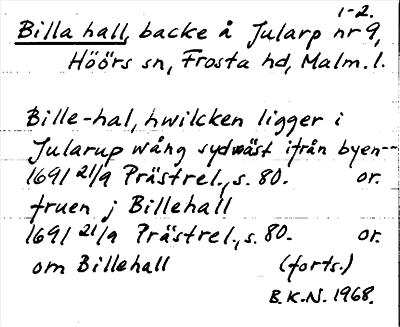 1-2.
Billa hall, backe å Jularp nr 9,
Höörs sn, Frosta hd, Malm. l.
Bille-hal, hwilcken ligger i
Jularup wång sydwäst ifrån byen--
1691 21/9 Prästrel., s. 80. or.
fruen j Billehall
1691 21/9 Prästrel., s. 80. or.
om Billehall (forts.)
B.K.N. 1968.